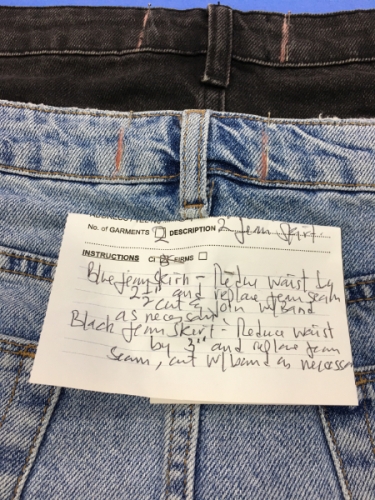 No. of GARMENTS 2 DESCRIPTION 2 Jean Skirt
INSTRUCTIONS CI FIRMS
Blue jean skirt - Reduce waist by
2" and replace jean seam
cut & join w/band
as necessary
Black Jean Skirt - Reduce waist
by 3" and replace jean
seam, cut w/band as necessa